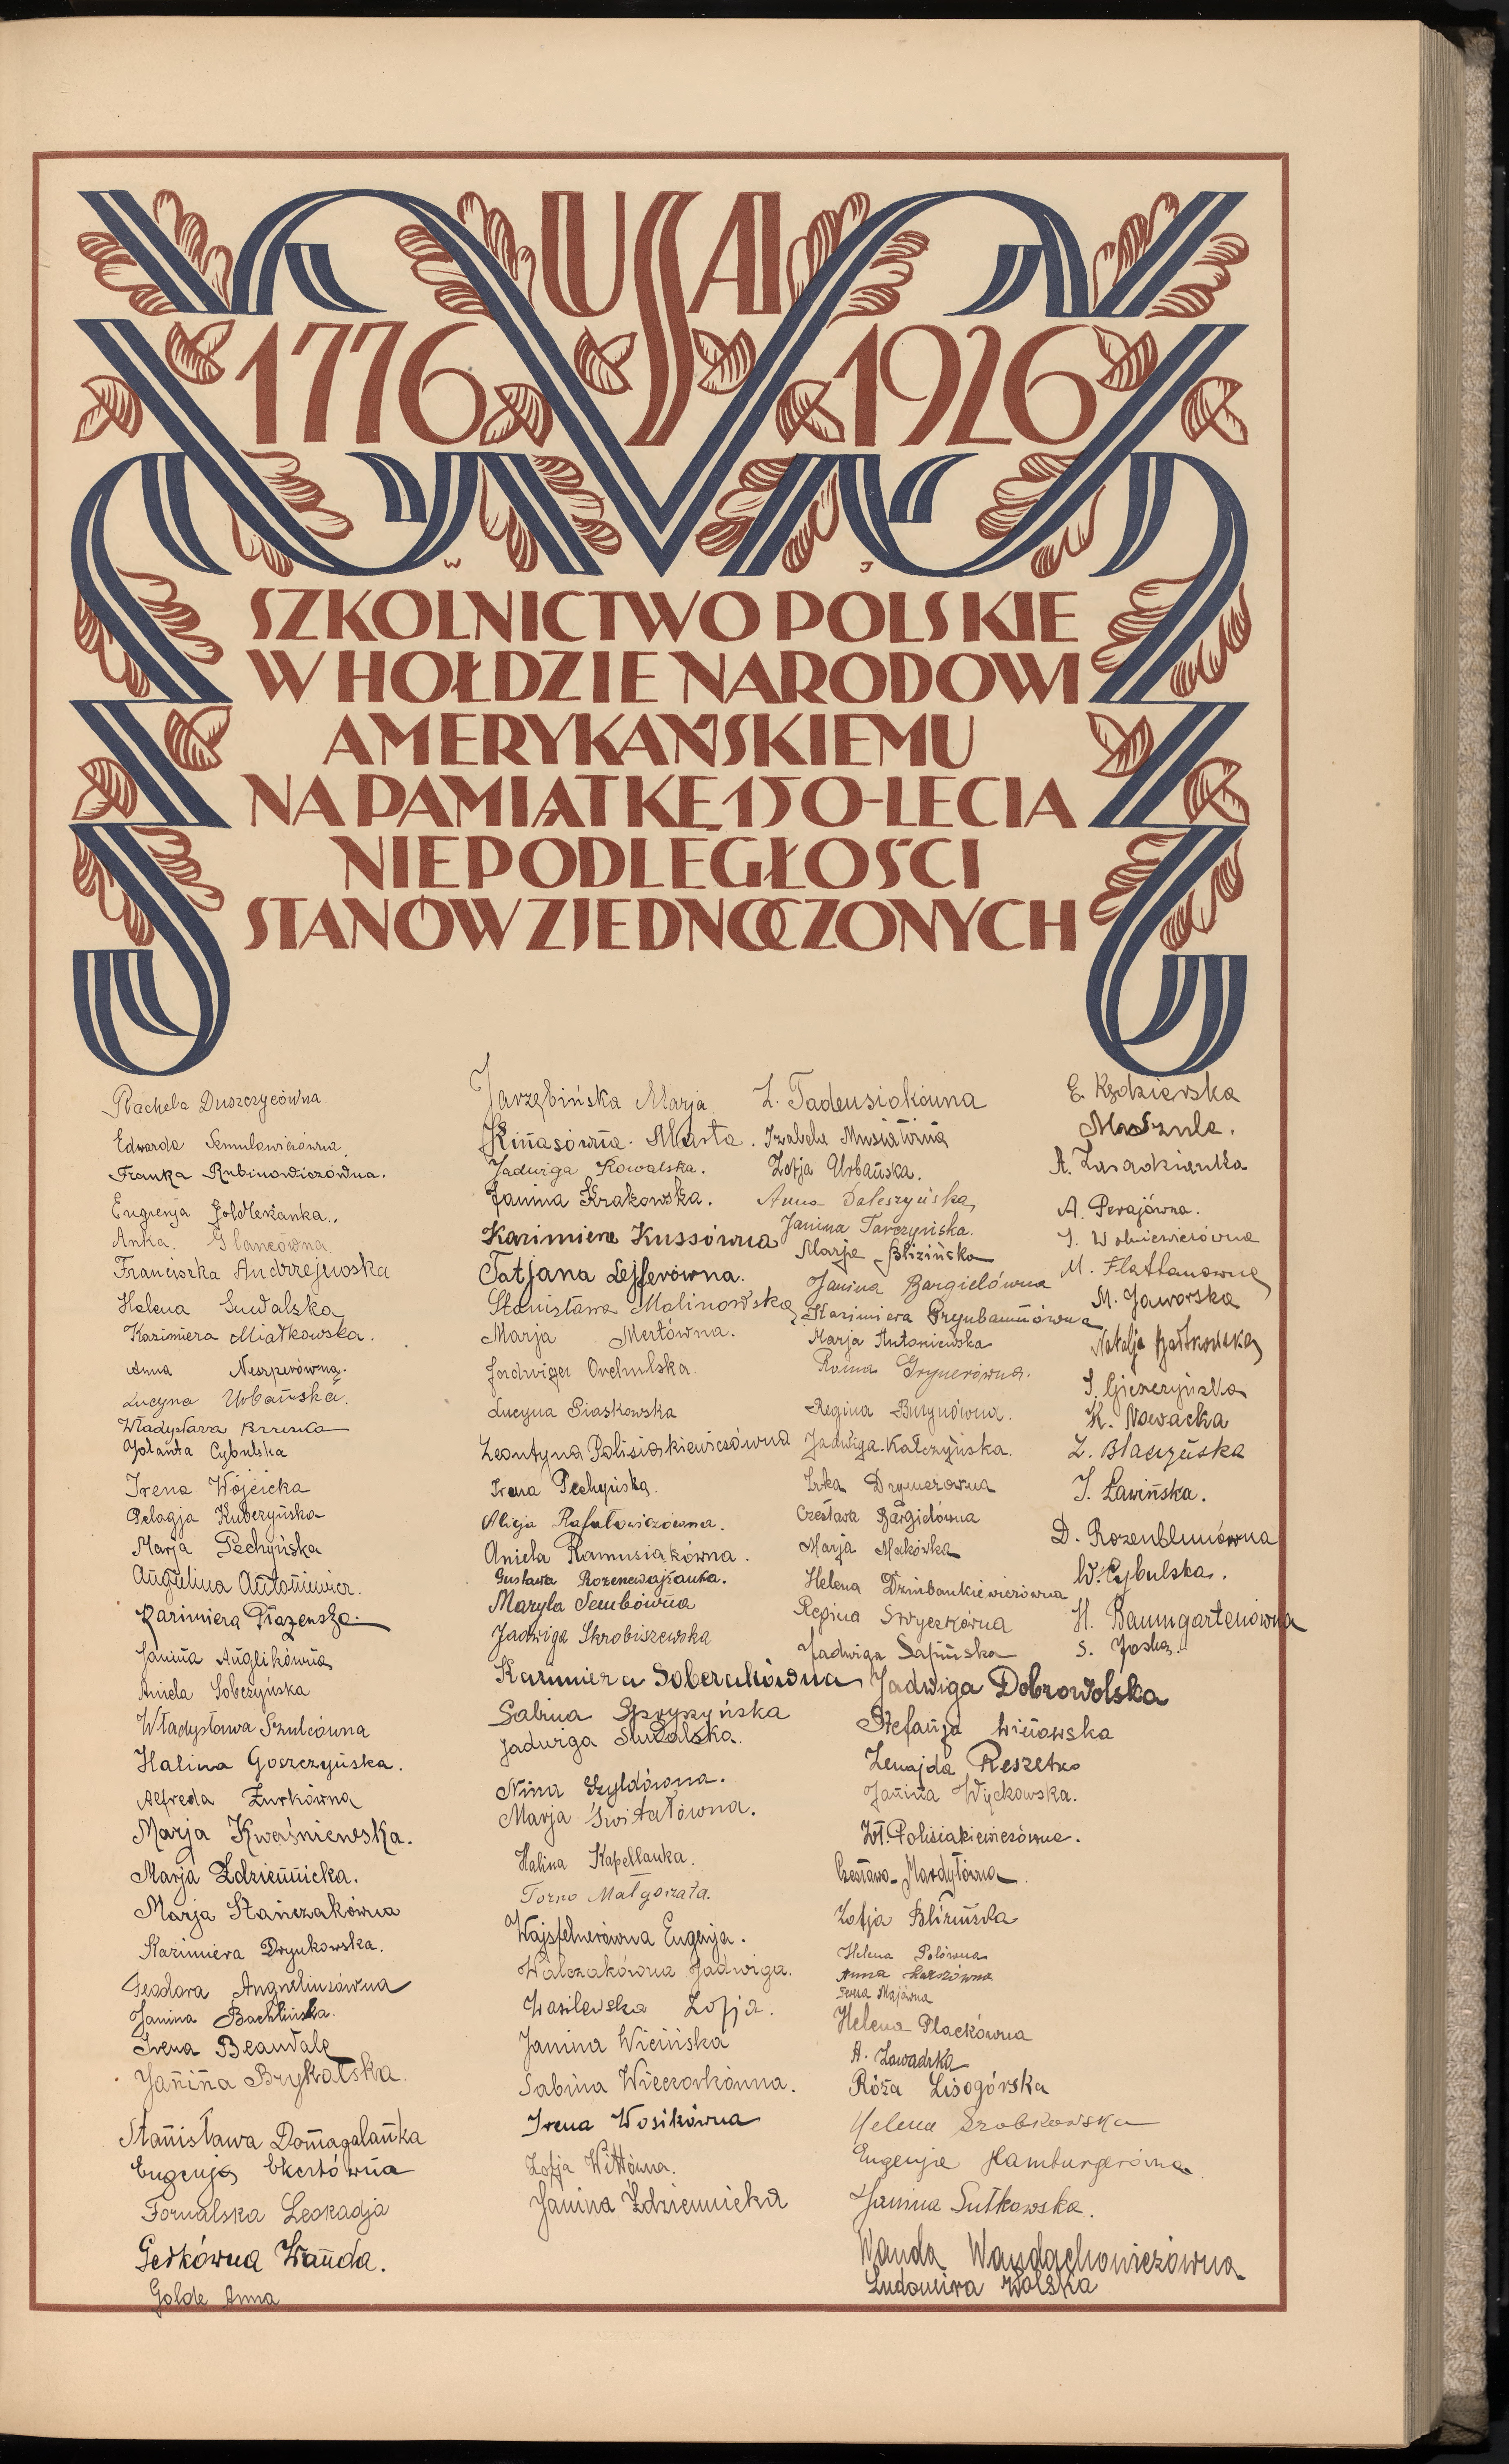 USA
1776 1926
W J
SZKOLNICTWO POLSKIE
W HOŁDZIE NARODOWI
AMERYKAŃSKIEMU
NA PAMIĄTKĘ 150-LECIA
NIEPODLEGŁOŚCI
STANÓW ZJEDNOCZONYCH
Rachela Duszczycówna
Edwarda Semulewiczówna
Franka Rubinowiczówna.
Eugenja
Anka Glancówna
Franciszka Andrzejewska
Helena Suwalska
Kazimiera Miatkowska.
Anna Neszperówna.
Lucyna Urbańska.
Władysława
Jolanta Cybulska
Irena Wójcicka
Pelagja Kuberzyńska
Marja Pechyńska
Angielina Antoniewicz.
Kazimiera
Janina Anglikówna
Aniela Sobczyńska
Władysława Szulcówna
Halina Goszczyńska.
Alfreda Żurkówna
Marja Kwaśniewska.
MarjaŹdziennicka.
Marja Stańczakówna
Kazimiera Drynkowska.
Teodora Angneliusówna
Janina Bachlińska.
Irena Beauvale
Janina Brykalska.
Stanisława Domagalanka
Eugenja Ekertówna
Fornalska Leokadja
Getkówna Wanda.
Golde Anna
Jarzębińska Marja
Kinasówna Marta.
Jadwiga Kowalska.
Janina Krakowska.
Kazimiera Kussówna
Tatjana Lejferówna.
Stanisława Malinowska
Marja Mertówna.
Jadwiga Orchulska.
Lucyna Piaskowska
Leontyna Polisiakiewiczówna
Irena Pechyńska.
Alicja Rafałowiczówna.
Aniela Ramusiakówna.
Gustawa Rozenewajżanka.
Maryla Sembówna
Jadwiga Skrobiszewska
Kazimiera Soberakówna
Sabina Spryszyńska
Jadwiga Suwalska.
Nina Szyldówna.
Marja Świtałówna.
Halina Kapellanka.
Torno Małgorzata.
Wajsfelnerówna Eugenja.
Walczakówna Jadwiga.
Wasilewska Zofja.
Janina Wicińska
Sabina Wieczorkówna.
Irena Wosikówna
Zofja Wittówna.
Janina Ździennicka
Z. Tadeusiakówna
Izabela Musiałówna
Zofja Urbańska.
Anna
Janina Tarczyńska.
Marja Blizińska
Janina Bargielówna
Kazimiera Grynbaumówna
Marja Antoniewska
Roma Grynerówna.
Regina Buzynówna.
Jadwiga Kałczyńska.
Irka Drynerowna
Czesława Bargielówna
Marja Makówka
Helena Dzinbankiewiczówna
Regina Swyczkówna
Jadwiga Sapińska
Jadwiga Dobrowolska
Stefanja Winowska
Zenajda Reszetko
Janina Wyckowska.
Wł. Polisiakiewiczówna.
Czesława Mardyłówna
Zofja Blizińska
Helena Polówna
Anna
Irena Majówna
Helena Plackówna
A. Zawadzka
Róża Lisogórska
Helena Szobkowska
Eugenja Hamburgerówna
Janina Sutkowska.
Wanda Wandachowiczówna
Ludomira Wolska
E. Kędzierska
A.
A. Perajówna.
J. Wolniewiczówna
M. Flattanowna
M. Jaworska
Natalja Bartkowska
J. Gieszczyńska
K. Nowacka
Z. Błaszyńska
J. Ławińska.
D. Rozenblumówna
W. Cybulska.
H. Baumgartenówna
S. Joska.